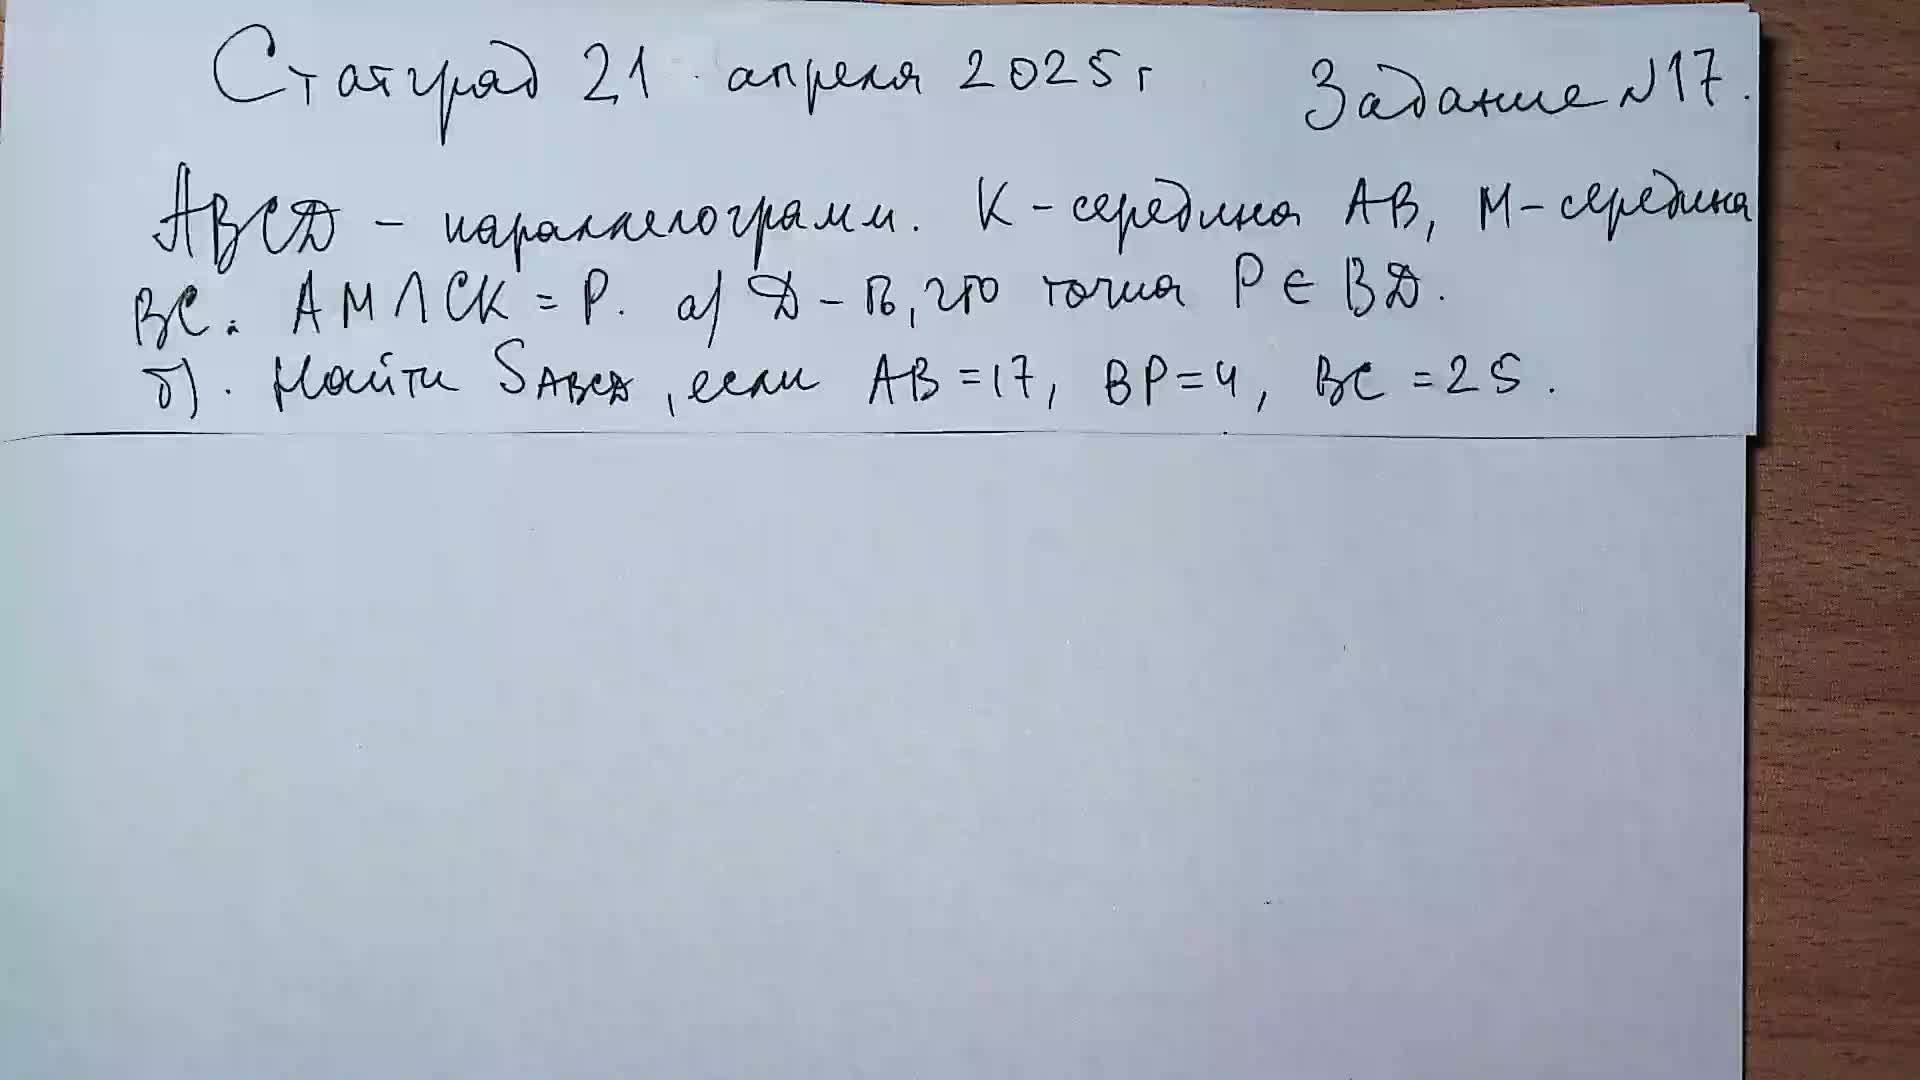 Статград 21 апреля 2025 г Задание №17.
ABCD - параллелограмм. K - середина AB, M - середина
BC. AM ∩ CK = P. а) Д-ть, что точка P ∈ BD.
б). Найти SABCD, если AB = 17, BP = 4, BC = 25.